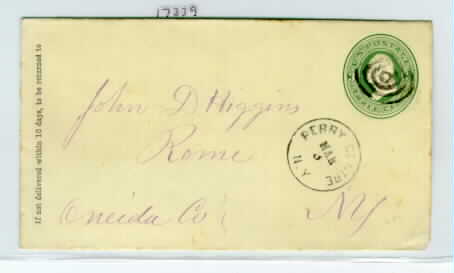 17339
If not delivered within 10 days, to be returned to
U.S. POSTAGE
THREE CENTS
John D Higgins
Rome
Oneida Co
NY
PERRY CENTRE
MAR
5
N.Y.